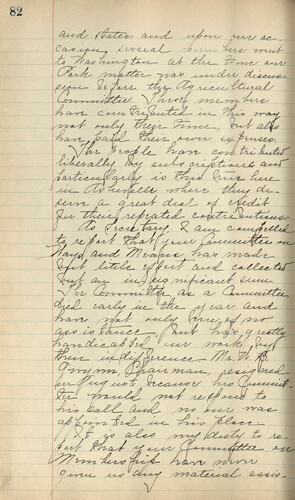 82
and States and upon our oc-
casion several have went
to Washington at the time our
Park matter was under discus-
sion before the Agricultural
Committee. These members
have contributed in this way
not only their time, but also
have paid their own expenses.
The people have contributed
liberally by subscriptions and
particularly is this true here
in Asheville where they de-
serve a great deal of credit
for their repeated contributions.
As Secretary I am compelled
to report that your Committee on
Ways and Means has made
but little effort and collected
but an insignificant sum.
The Committee as a Committee
died early in the year and
have not only proved no
assistance but has greatly
handicapped our work by
their indifference. Mr. W. B.
Gwynn, Chairman, resigned
in August because his Commit-
tee would not respond to
his call and no one was
appointed in his place.
It is also my duty to re-
port that your Committee on
Membership have never
given us any material assis-